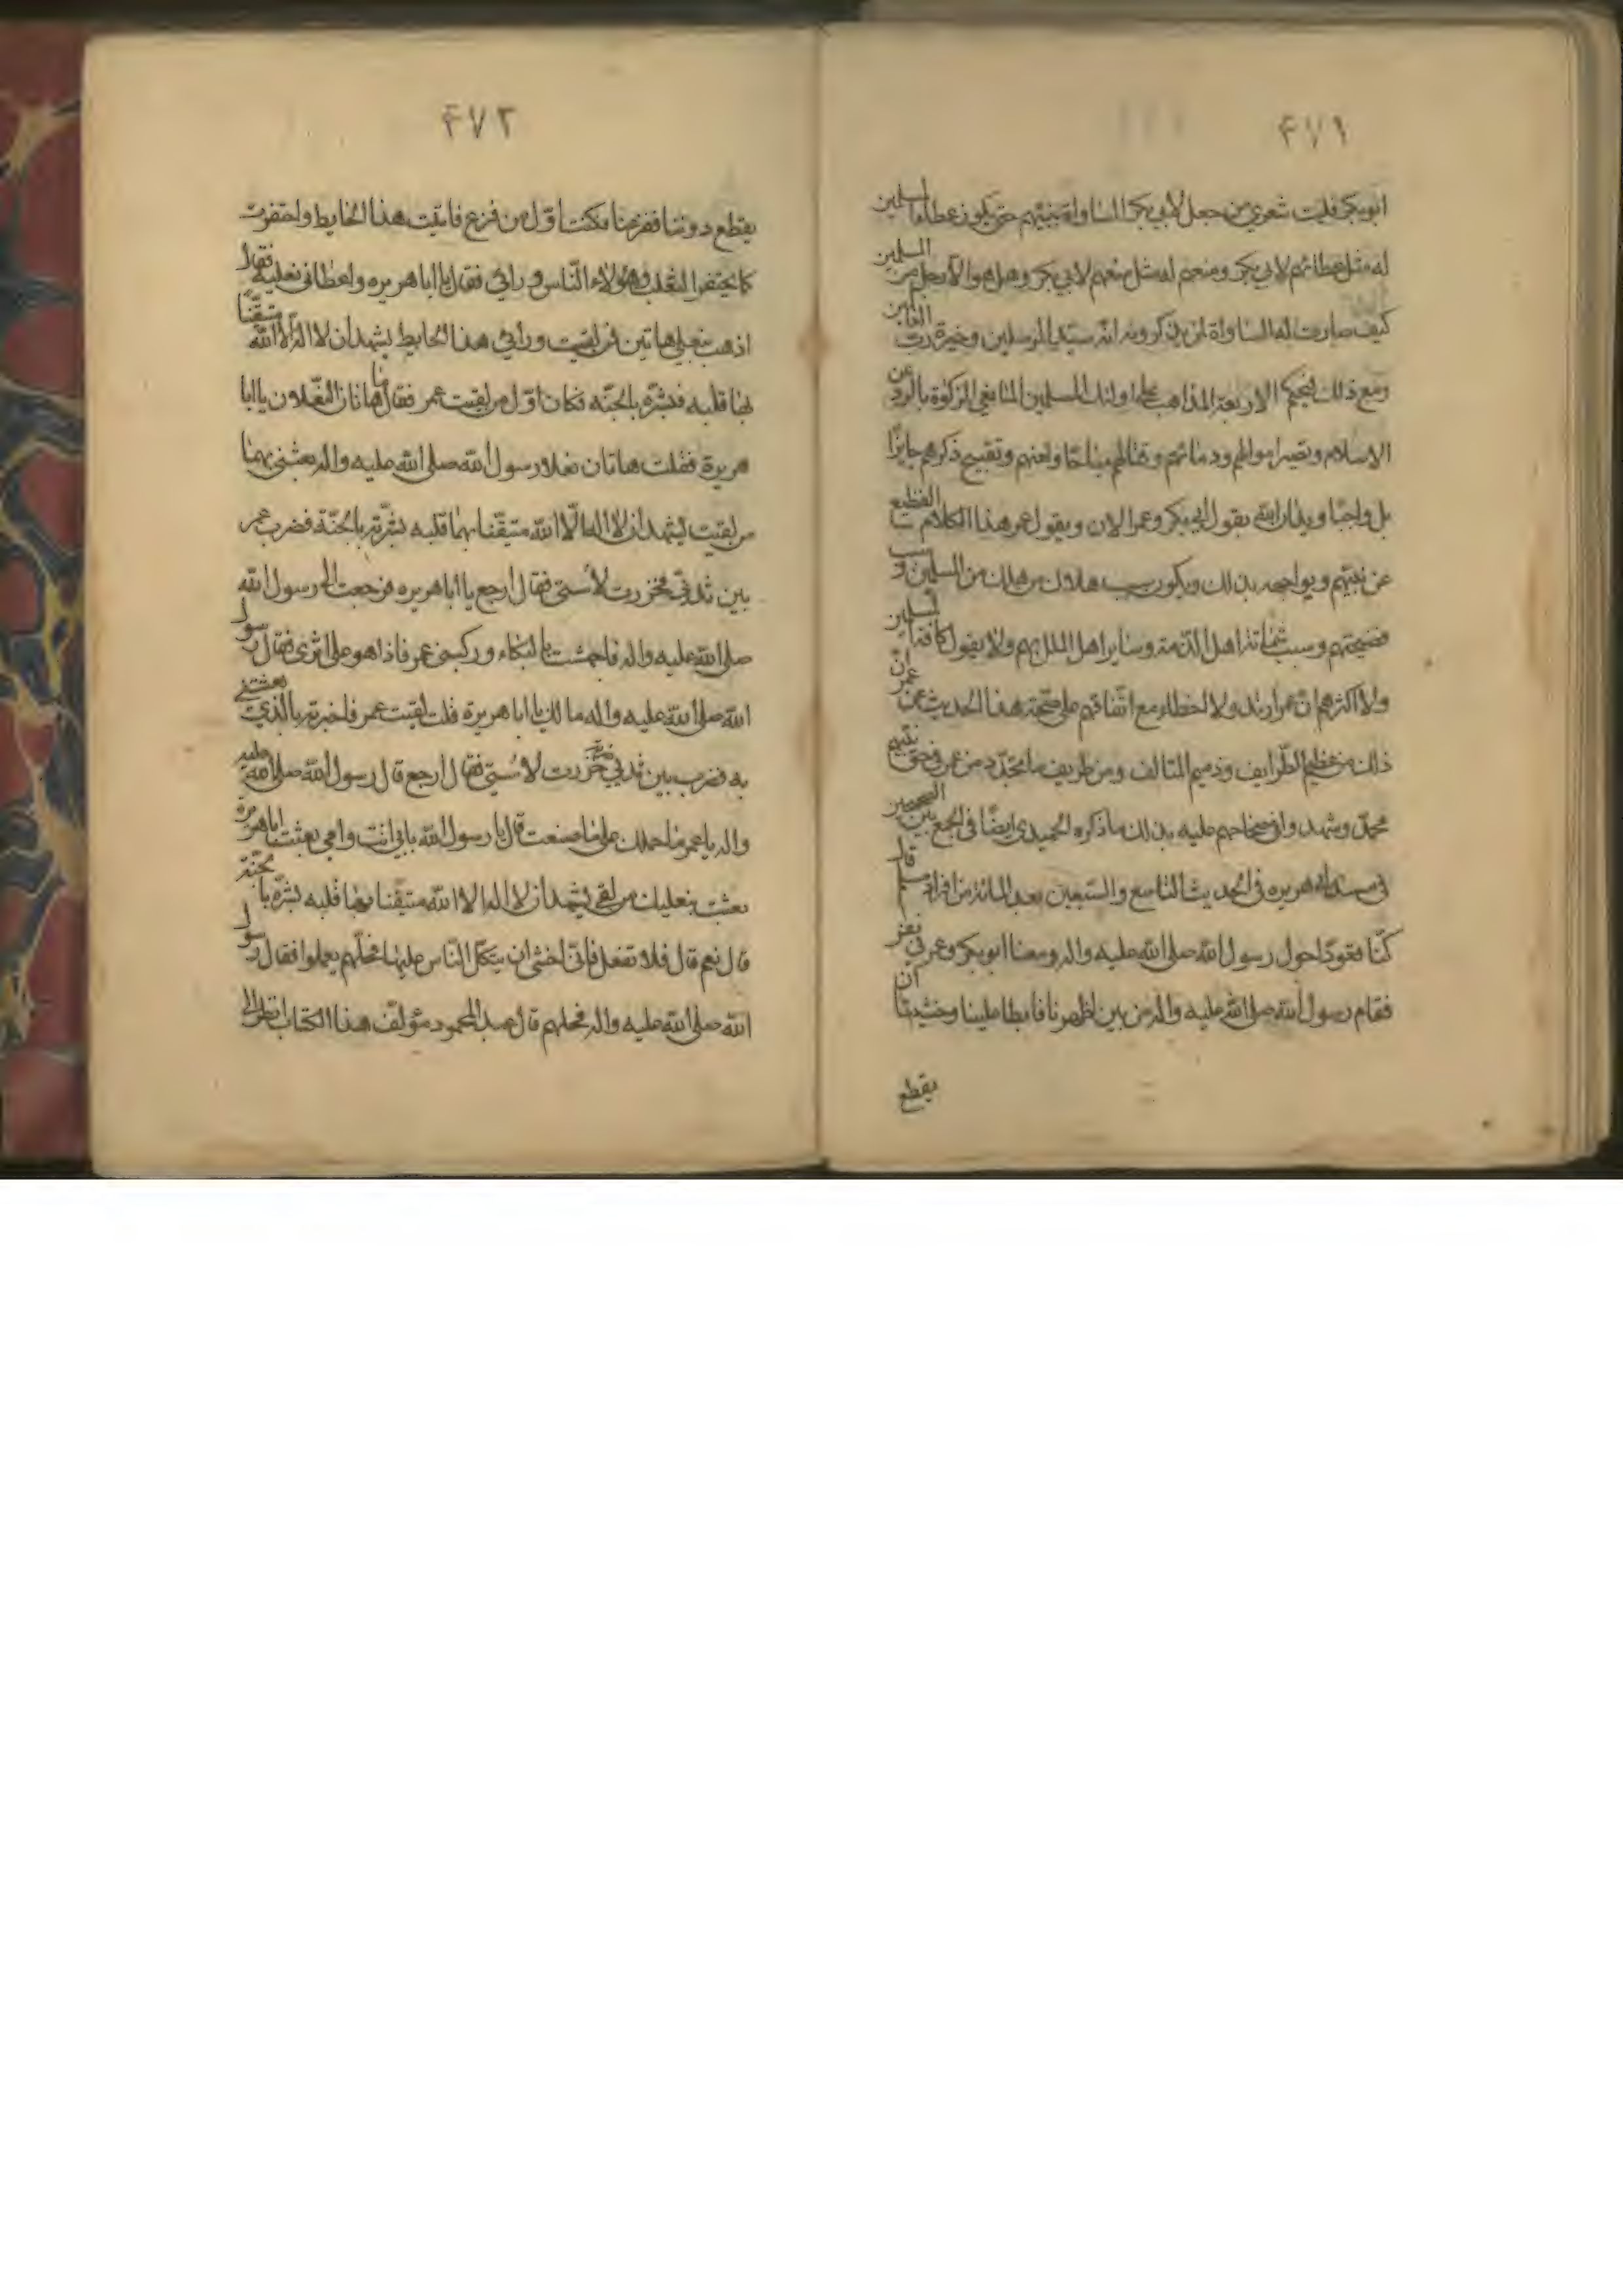 ۴۷۱
ابوبكر فليت شعري من جعل لابي بكر المساواة بنبيهم حتى يكون عطاء المسلمين
له مثل عطائهم لابي بكر ومنعهم له مثل منعهم لابي بكر وهل هو الا رجل من المسلمين
كيف صارت له المساواة لمن يذكرون انه سيد المرسلين وخيرة رب العالمين
ومع ذلك الاربعة المذاهب على اولئك المسلمين المانعي الزكوة بالرد عن
الاسلام وتصير اموالهم ودمائهم وقتالهم مباحا ولعنهم وتقبيح ذكرهم جايزا
بل واجبا بقول ابي بكر وعمر الان ويقول عمر هذا الكلام الفظيع
عن نبيهم ويواجهه بذلك ويكون سبب هلاك من هلك من المسلمين و
فضيحتهم وسبب شماتة اهل الذمة وساير اهل الملل بهم ولا يقول كافة المسلمين
ولا اكثرهم ان عمر ارتد ولا اخطاء مع اتفاقهم على صحة هذا الحديث عن عمر ان
ذلك من عظيم الطرايف وذميم المتالف ومن طريف ما تجدد من عمر في حق نبيهم
محمد وشهدوا في صحاحهم عليه بذلك ما ذكره الحميدي ايضا في الجمع بين الصحيحين
في مسند ابي هريره في الحديث التاسع والسبعين بعد المائة من افراد مسلم قال
كنا قعودا حول رسول الله صلى الله عليه واله ومعنا ابو بكر وعمر في نفر
فقام رسول الله صلى الله عليه واله من بين اظهرنا فابطا علينا وخشينا ان
يقطع
۴۷۲
يقطع دوننا ففزعنا فكنت اول من فزع فاتيت هذا الحايط واحتفزت
كما يحتفز الثعلب وهؤلاء الناس ورائي فقال يا ابا هريره واعطاني نعليه فقال
اذهب بنعلي هاتين فمن لقيت وراء هذا الحايط يشهد ان لا اله الا الله متيقنا
بها قلبه فبشره بالجنة فكان اول من لقيت عمر فقال ما هاتان النعلان يا ابا
هريرة فقلت هاتان نعلا رسول الله صلى الله عليه واله بعثني بهما
من لقيت يشهد ان لا اله الا الله متيقنا بهما قلبه بشرته بالجنة فضرب عمر
بين ثديي فخررت لاستي فقال ارجع يا ابا هريره فرجعت الى رسول الله
صلى الله عليه واله فاجهشت بالبكاء وركبني عمر فاذا هو على اثري فقال رسول
الله صلى الله عليه واله ما لك يا ابا هريرة قلت لقيت عمر فاخبرته بالذي بعثتني
به فضرب بين ثديي ضربة خررت لاستي فقال ارجع قال رسول الله صلى الله عليه
واله يا عمر ما حملك على ما صنعت قال يا رسول الله بابي انت وامي بعثت ابا هريرة
بعثت بنعليك من لقي يشهد ان لا اله الا الله متيقنا بها قلبه بشره بالجنة
قال نعم قال فلا تفعل فاني اخشى ان يتكل الناس عليها فخلهم يعملوا فقال رسول
الله صلى الله عليه واله فخلهم قال عبد المحمود مؤلف هذا الكتاب انظر الى